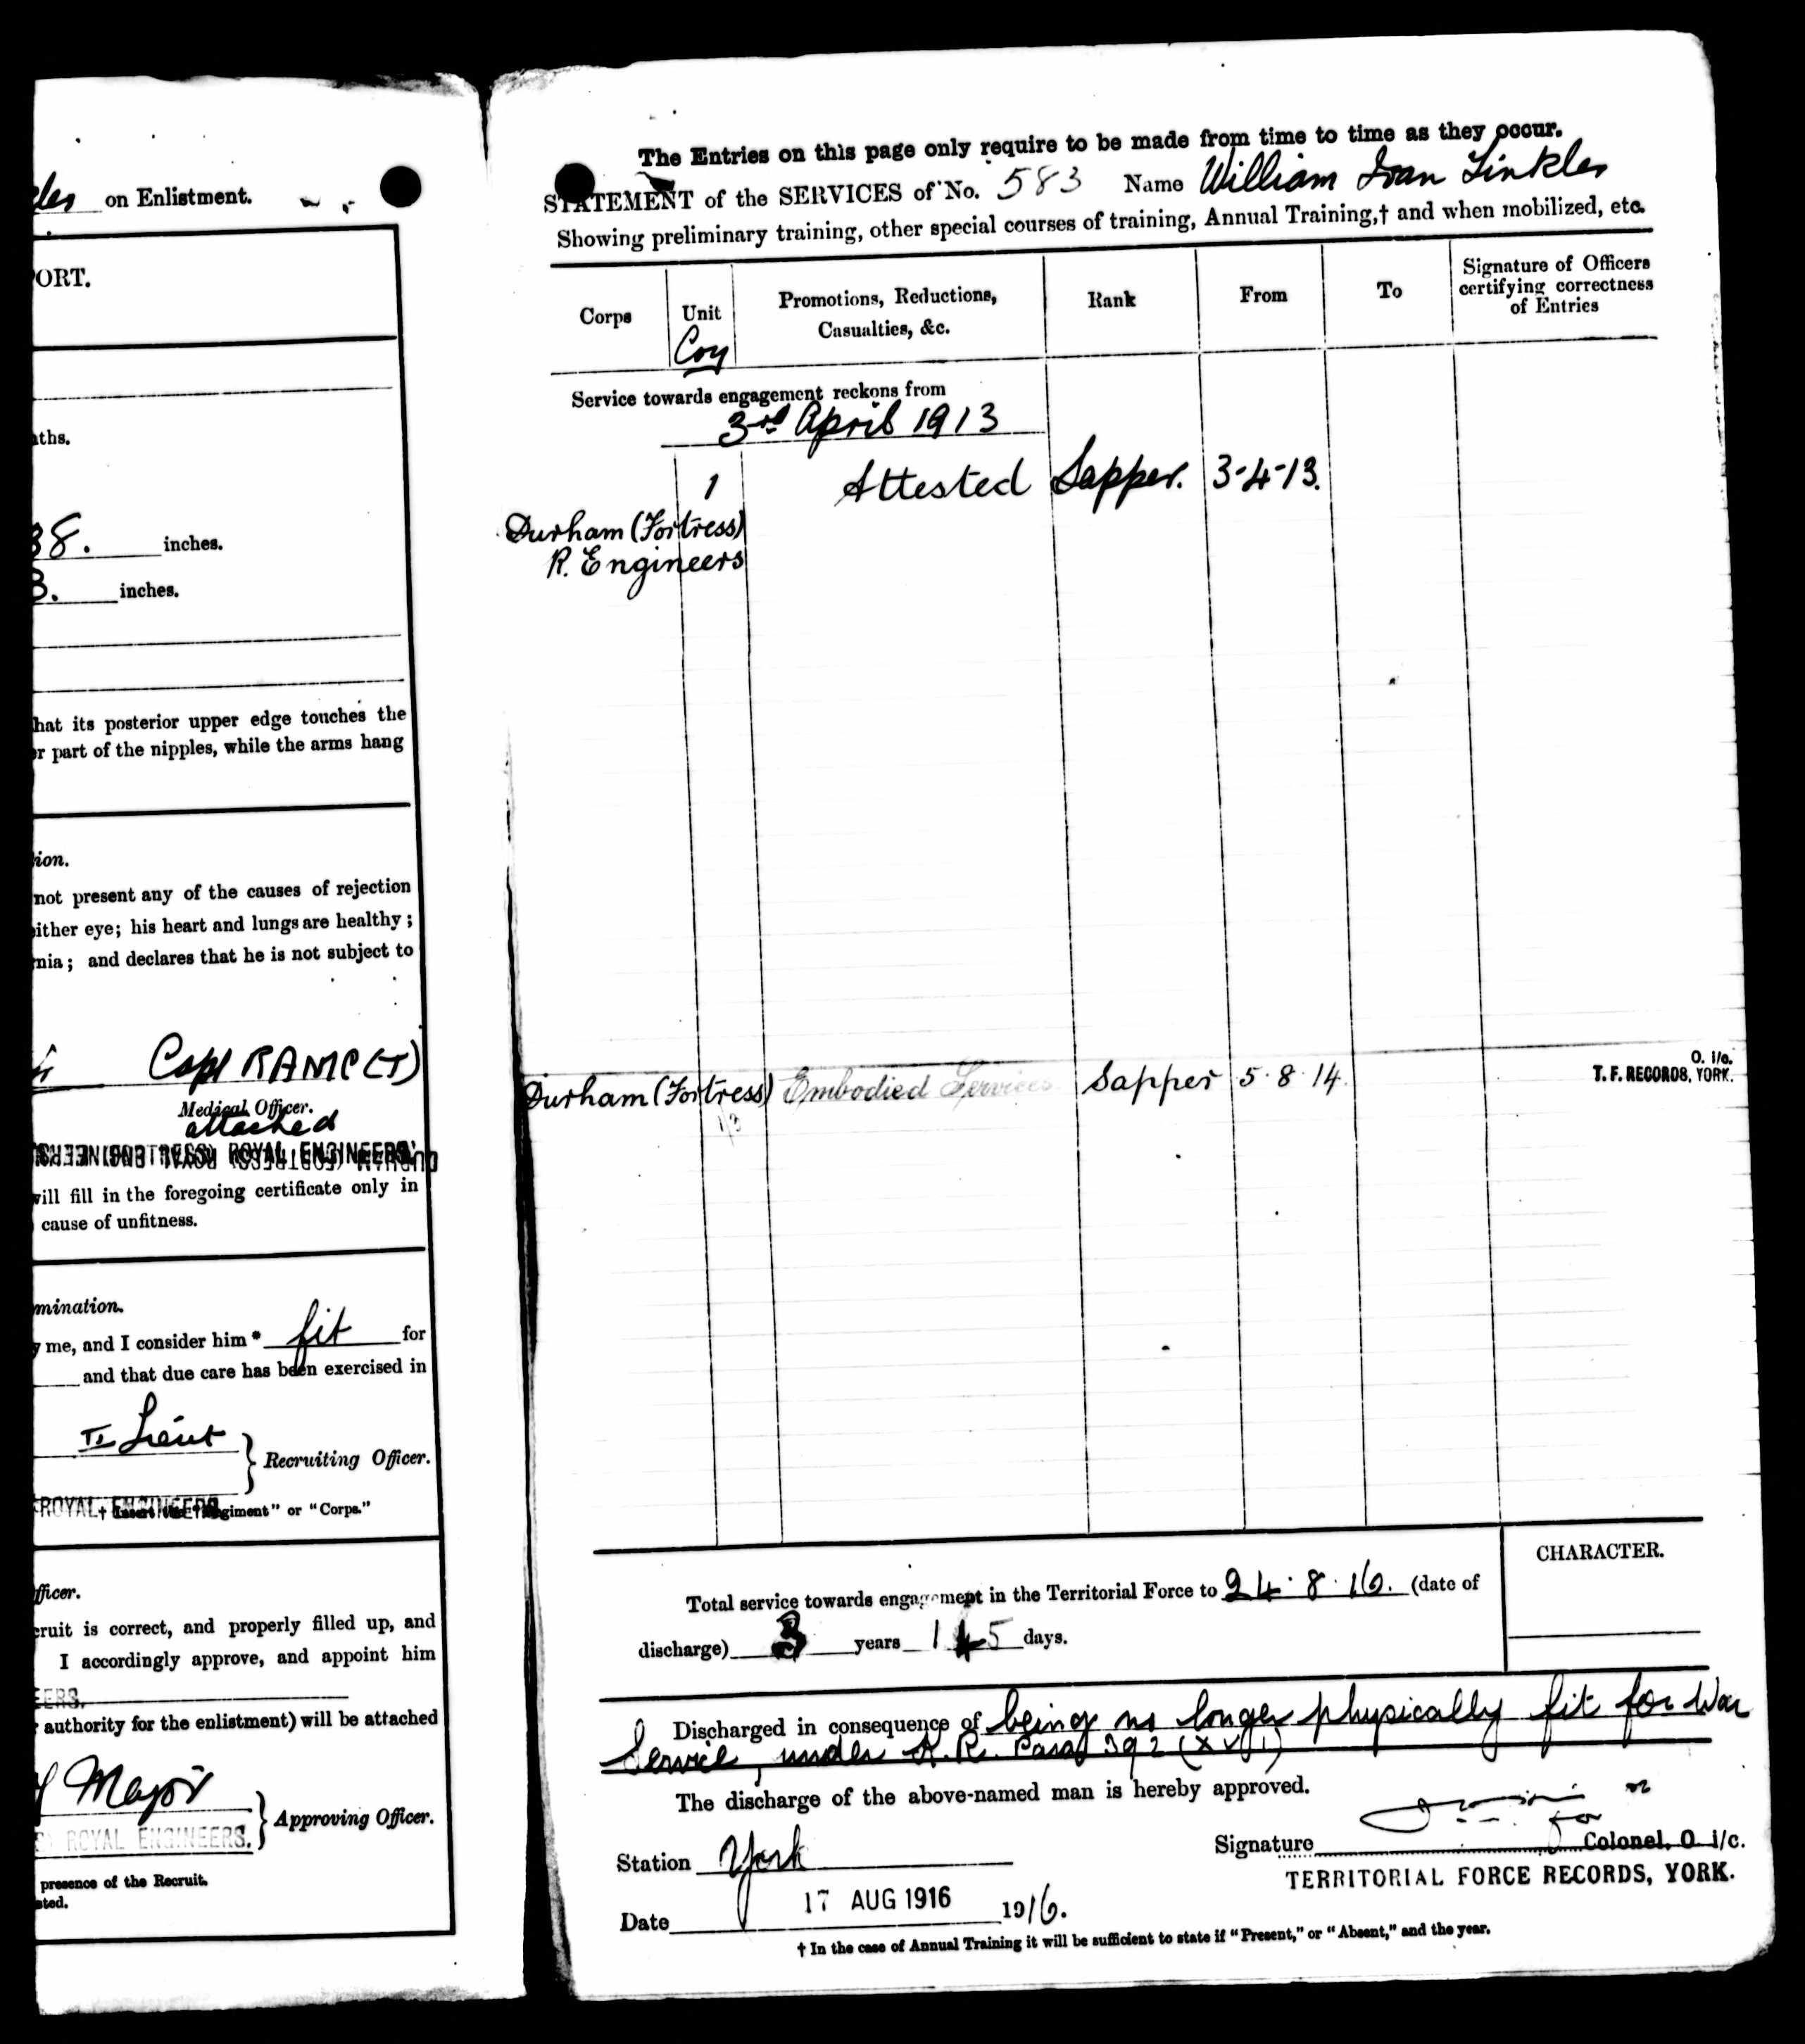 on Enlistment.
ORT.
ths.
38. inches.
3. inches.
hat its posterior upper edge touches the
r part of the nipples, while the arms hang
ion.
not present any of the causes of rejection
ither eye; his heart and lungs are healthy;
nia; and declares that he is not subject to
Capt RAMC (T)
Medical Officer.
attached
(FORTRESS) ROYAL ENGINEERS.
will fill in the foregoing certificate only in
cause of unfitness.
mination.
y me, and I consider him * fit for
and that due care has been exercised in
II Lieut
Recruiting Officer.
ROYAL ENGINEERS
† Insert the "Regiment" or "Corps."
fficer.
cruit is correct, and properly filled up, and
I accordingly approve, and appoint him
EERS.
authority for the enlistment) will be attached
Major
Approving Officer.
ROYAL ENGINEERS.
presence of the Recruit.
sted.
The Entries on this page only require to be made from time to time as they occur.
STATEMENT of the SERVICES of No. 583 Name William Ivan Tinkler
Showing preliminary training, other special courses of training, Annual Training,† and when mobilized, etc.
Corps Unit Promotions, Reductions, Casualties, &c. Rank From To Signature of Officers certifying correctness of Entries
Coy
Service towards engagement reckons from
3rd April 1913
1 Attested Sapper. 3-4-13.
Durham (Fortress)
R. Engineers
O. i/c.
T. F. RECORDS, YORK.
Durham (Fortress) Embodied Services Sapper 5·8·14.
1/3
CHARACTER.
Total service towards engagement in the Territorial Force to 24·8·16. (date of
discharge) 3 years 145 days.
Discharged in consequence of being no longer physically fit for War
Service, under K.R. Para 392 (XVI)
The discharge of the above-named man is hereby approved.
Station York
Signature for Colonel, O i/c.
TERRITORIAL FORCE RECORDS, YORK.
Date 17 AUG 1916 1916.
† In the case of Annual Training it will be sufficient to state if "Present," or "Absent," and the year.